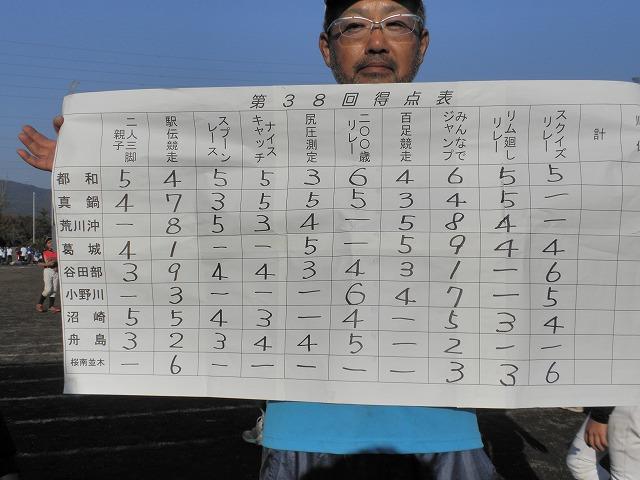 第38回得点表
親子二人三脚 駅伝競走 スプーンレース ナイスキャッチ 尻圧測定 二〇〇歳リレー 百足競走 みんなでジャンプ リム廻しリレー スクイズリレー 計
都和 5 4 5 5 3 6 4 6 5 5
真鍋 4 7 3 5 5 5 3 4 5 ー
荒川沖 ー 8 5 3 4 ー 5 8 4 ー
葛城 4 1 ー ー 5 ー 5 9 4 4
谷田部 3 9 4 4 3 4 3 1 ー 6
小野川 ー 3 ー ー ー 6 4 7 ー 5
沼崎 5 5 4 3 ー 4 ー 5 3 4
舟島 3 2 3 4 4 5 ー 2 ー ー
桜南並木 ー 6 ー ー ー ー ー 3 3 6